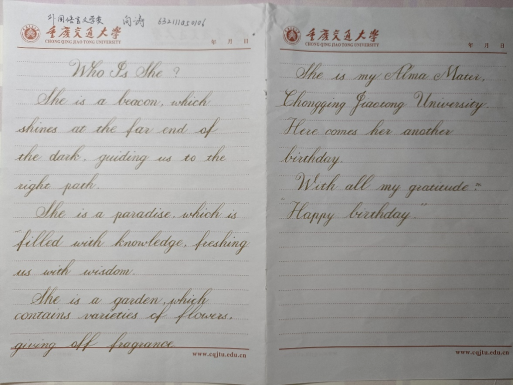 外国语言文学类 向涛 632111050106
重庆交通大学
CHONG QING JIAO TONG UNIVERSITY
年 月 日
Who Is She ?
She is a beacon, which
shines at the far end of
the dark, guiding us to the
right path.
She is a paradise, which is
filled with knowledge, freshing
us with wisdom.
She is a garden, which
contains varieties of flowers,
giving off fragrance
www.cqjtu.edu.cn
重庆交通大学
CHONG QING JIAO TONG UNIVERSITY
年 月 日
She is my Alma Mater,
Chongqing Jiaotong University.
Here comes her another
birthday.
With all my gratitude:
"Happy birthday."
www.cqjtu.edu.cn